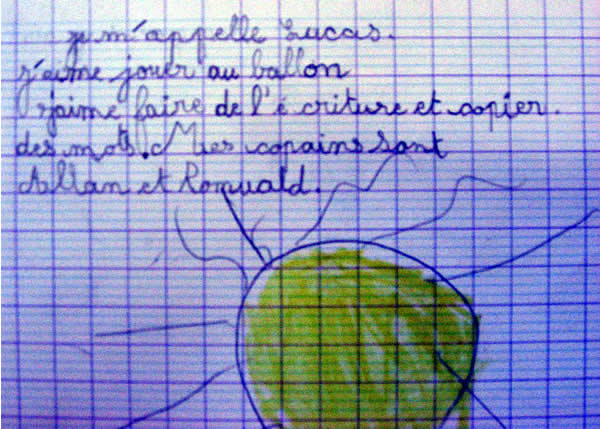 je m'appelle Lucas.
j'aime jouer au ballon
j'aime faire de l'é criture et copier.
des mots. Mes copains sont
Allan et Romuald.